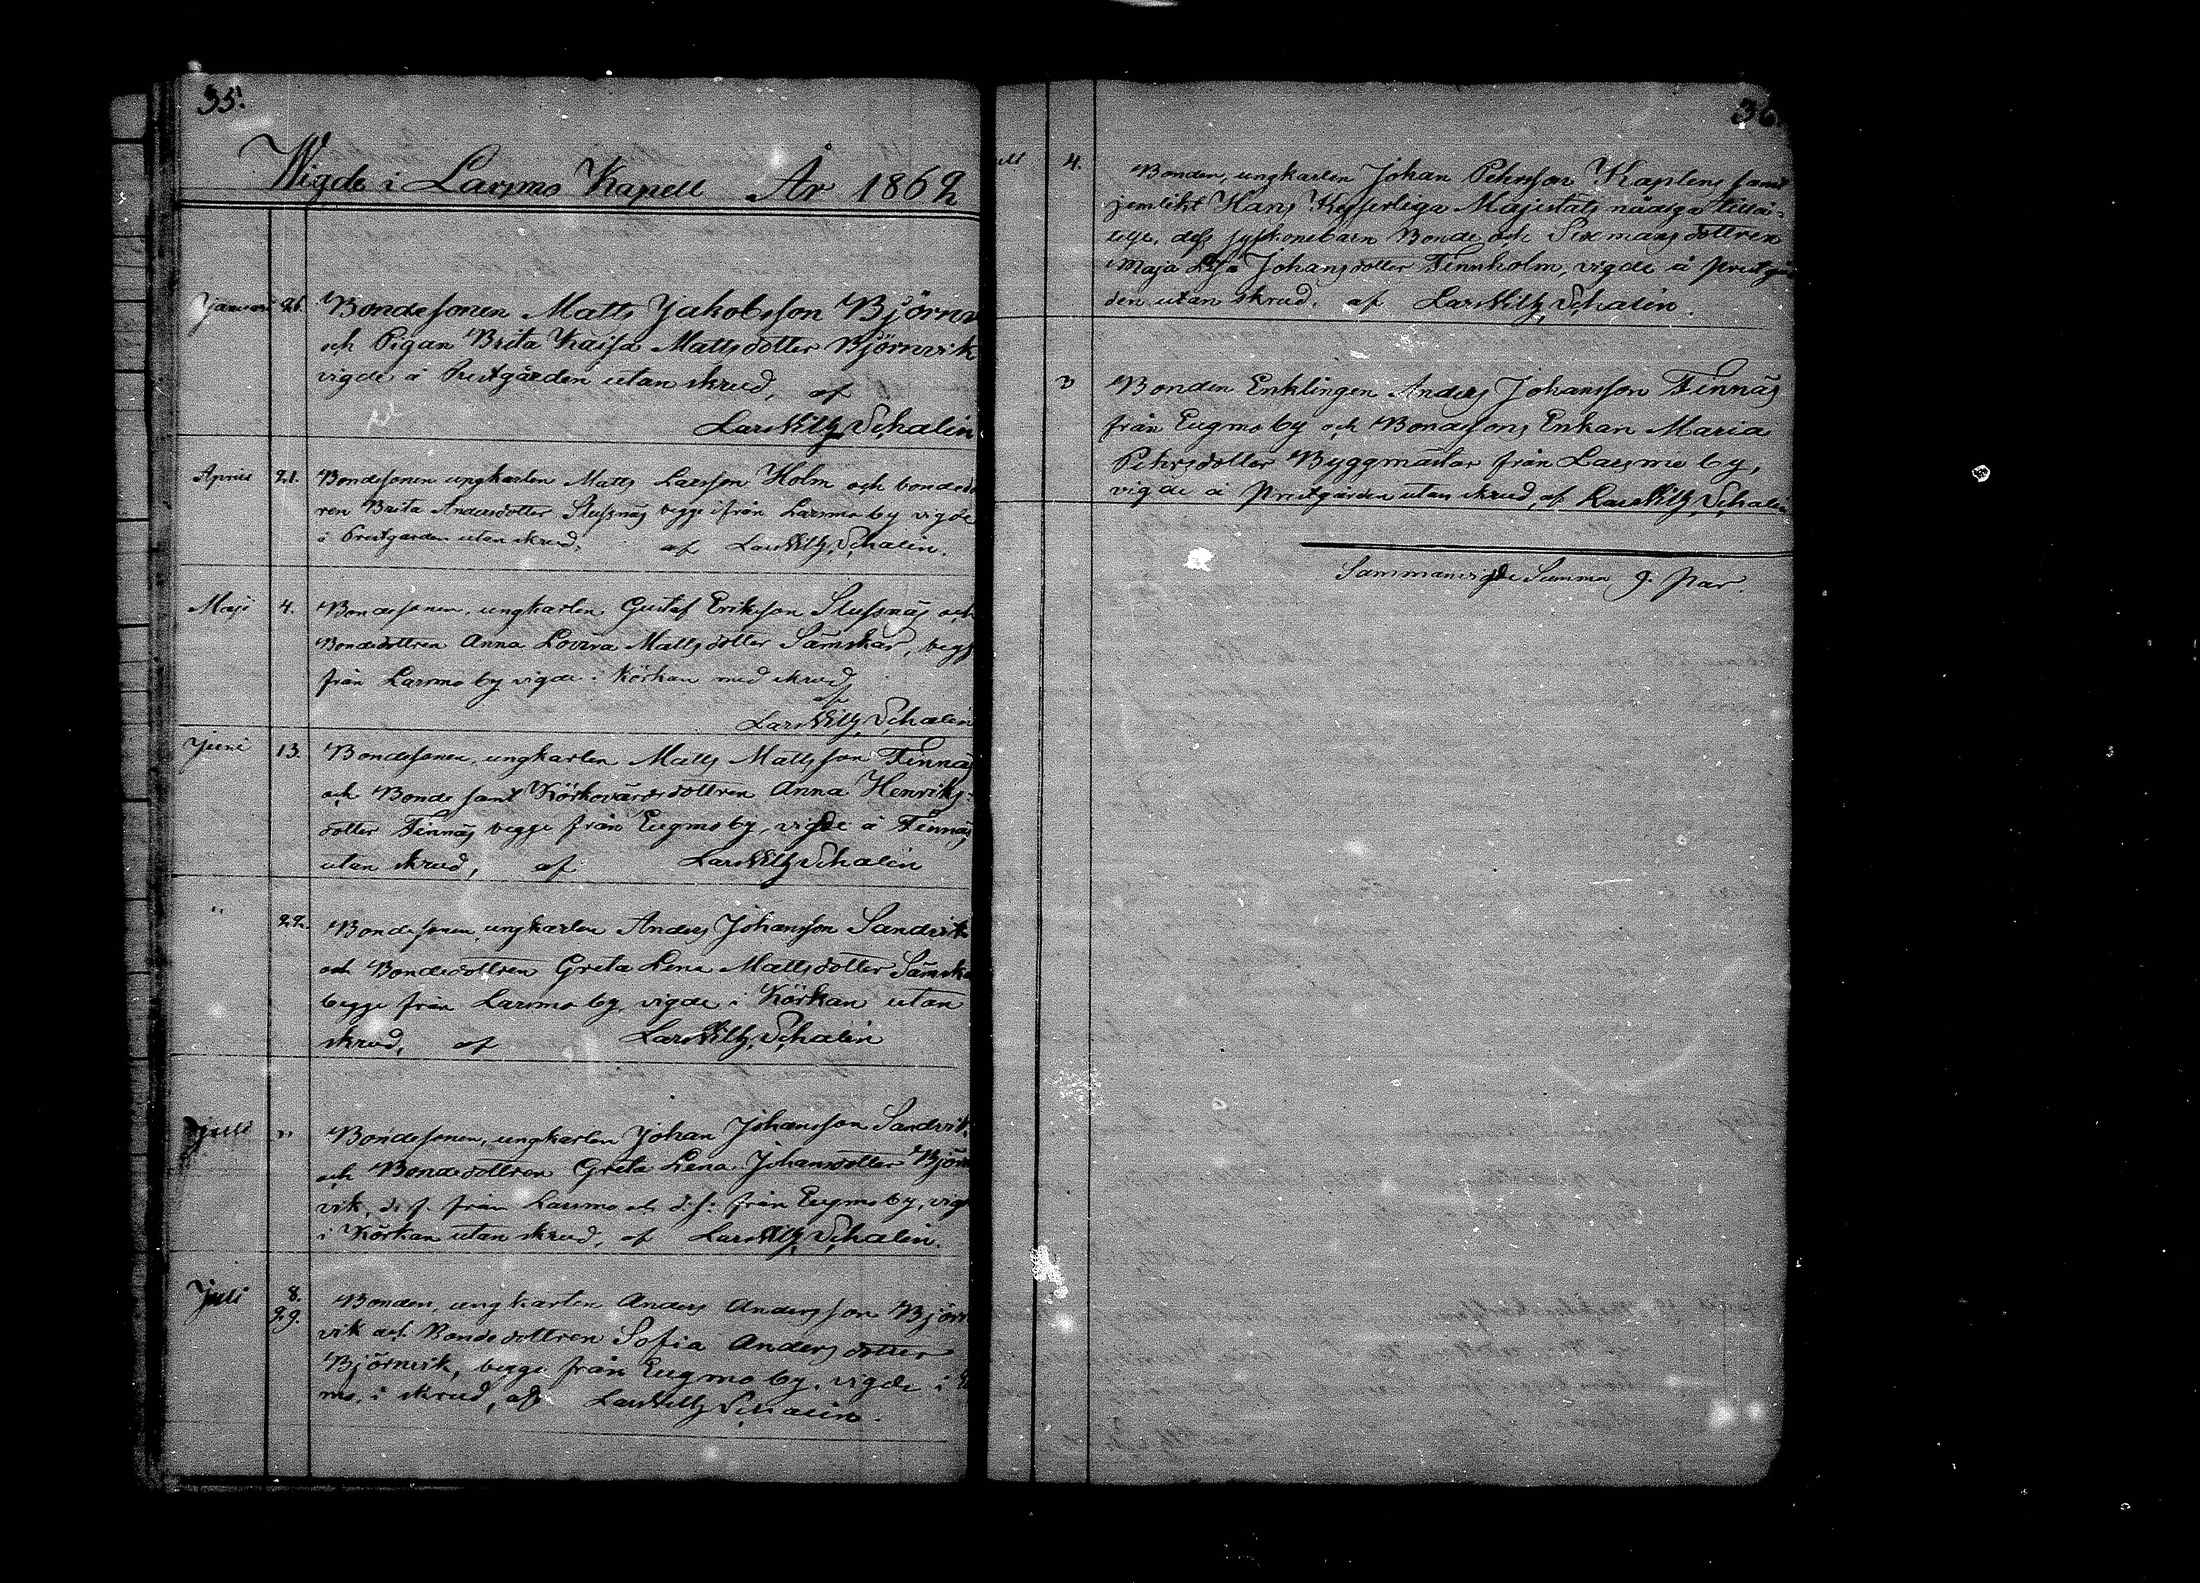 35.
Wigde i Larsmo Kapell År 1862
Januari 26. Bondesonen Matts Jakobsson Björnv
och Pigan Brita Kaisa Mattsdotter Björnvik
vigde å Prestgården utan skrud, af
Lars Wilh. Schalin
April 21. Bondesonen ungkarlen Matts Larsson Holm och bonded
ren Brita Andersdotter Slussnäs begge ifrån Larsmo by vigde
i Prestgården utan skrud, af Lars Wilh. Schalin.
Maji 4. Bondesonen, ungkarlen Gustaf Eriksson Slussnäs och
Bondedottren Anna Lovisa Mattsdotter Sämskar, begg
från Larsmo by vigde i Körkan med skrud
af
Lars Wilh. Schalin
Juni 13. Bondesonen, ungkarlen Matts Mattsson Finnäs
och Bonde samt Körkovärdsdottren Anna Henriks-
dotter Finnäs begge från Eugmo by, vigde å Finnäs
utan skrud, af Lars Wilh Schalin
" 22. Bondesonen, ungkarlen Anders Johansson Sandvik
och Bondedottren Greta Lena Mattsdotter Sämska
begge från Larsmo by, vigde i Körkan utan
skrud, af Lars Wilh. Schalin
" Bondesonen, ungkarlen Johan Johansson Sandvik
och Bondedottren Greta Lena Johansdotter Björn
vik, d. f. från Larsmo och d. s: från Eugmo by, vigd
i Körkan utan skrud, af Lars Wilh. Schalin.
Juli 8.
29. Bonden, ungkarlen Anders Andersson Björn
vik och Bondedottren Sofia Andersdotter
Björnvik, begge från Eugmo by, vigde i
mo, i skrud, af Lars Wilh Schalin.
36
4. Bonden, ungkarlen Johan Pehrsson Kaplens samt
jemlikt Hans Kejserliga Majestäts nådiga tillå-
telse, dess syskonebarn Bonde och Sexmansdottren
Maja Lisa Johansdotter Finnholm, vigde å prestgår
den utan skrud, af Lars Wilh. Schalin.
Bonden Enklingen Anders Johansson Finnäs
från Eugmo by och Bondesons Enkan Maria
Pehrsdotter Byggmästar från Larsmo by,
vigde å prestgården utan skrud, af Lars Wilh. Schalin
Sammanvigde Summa 9. par.